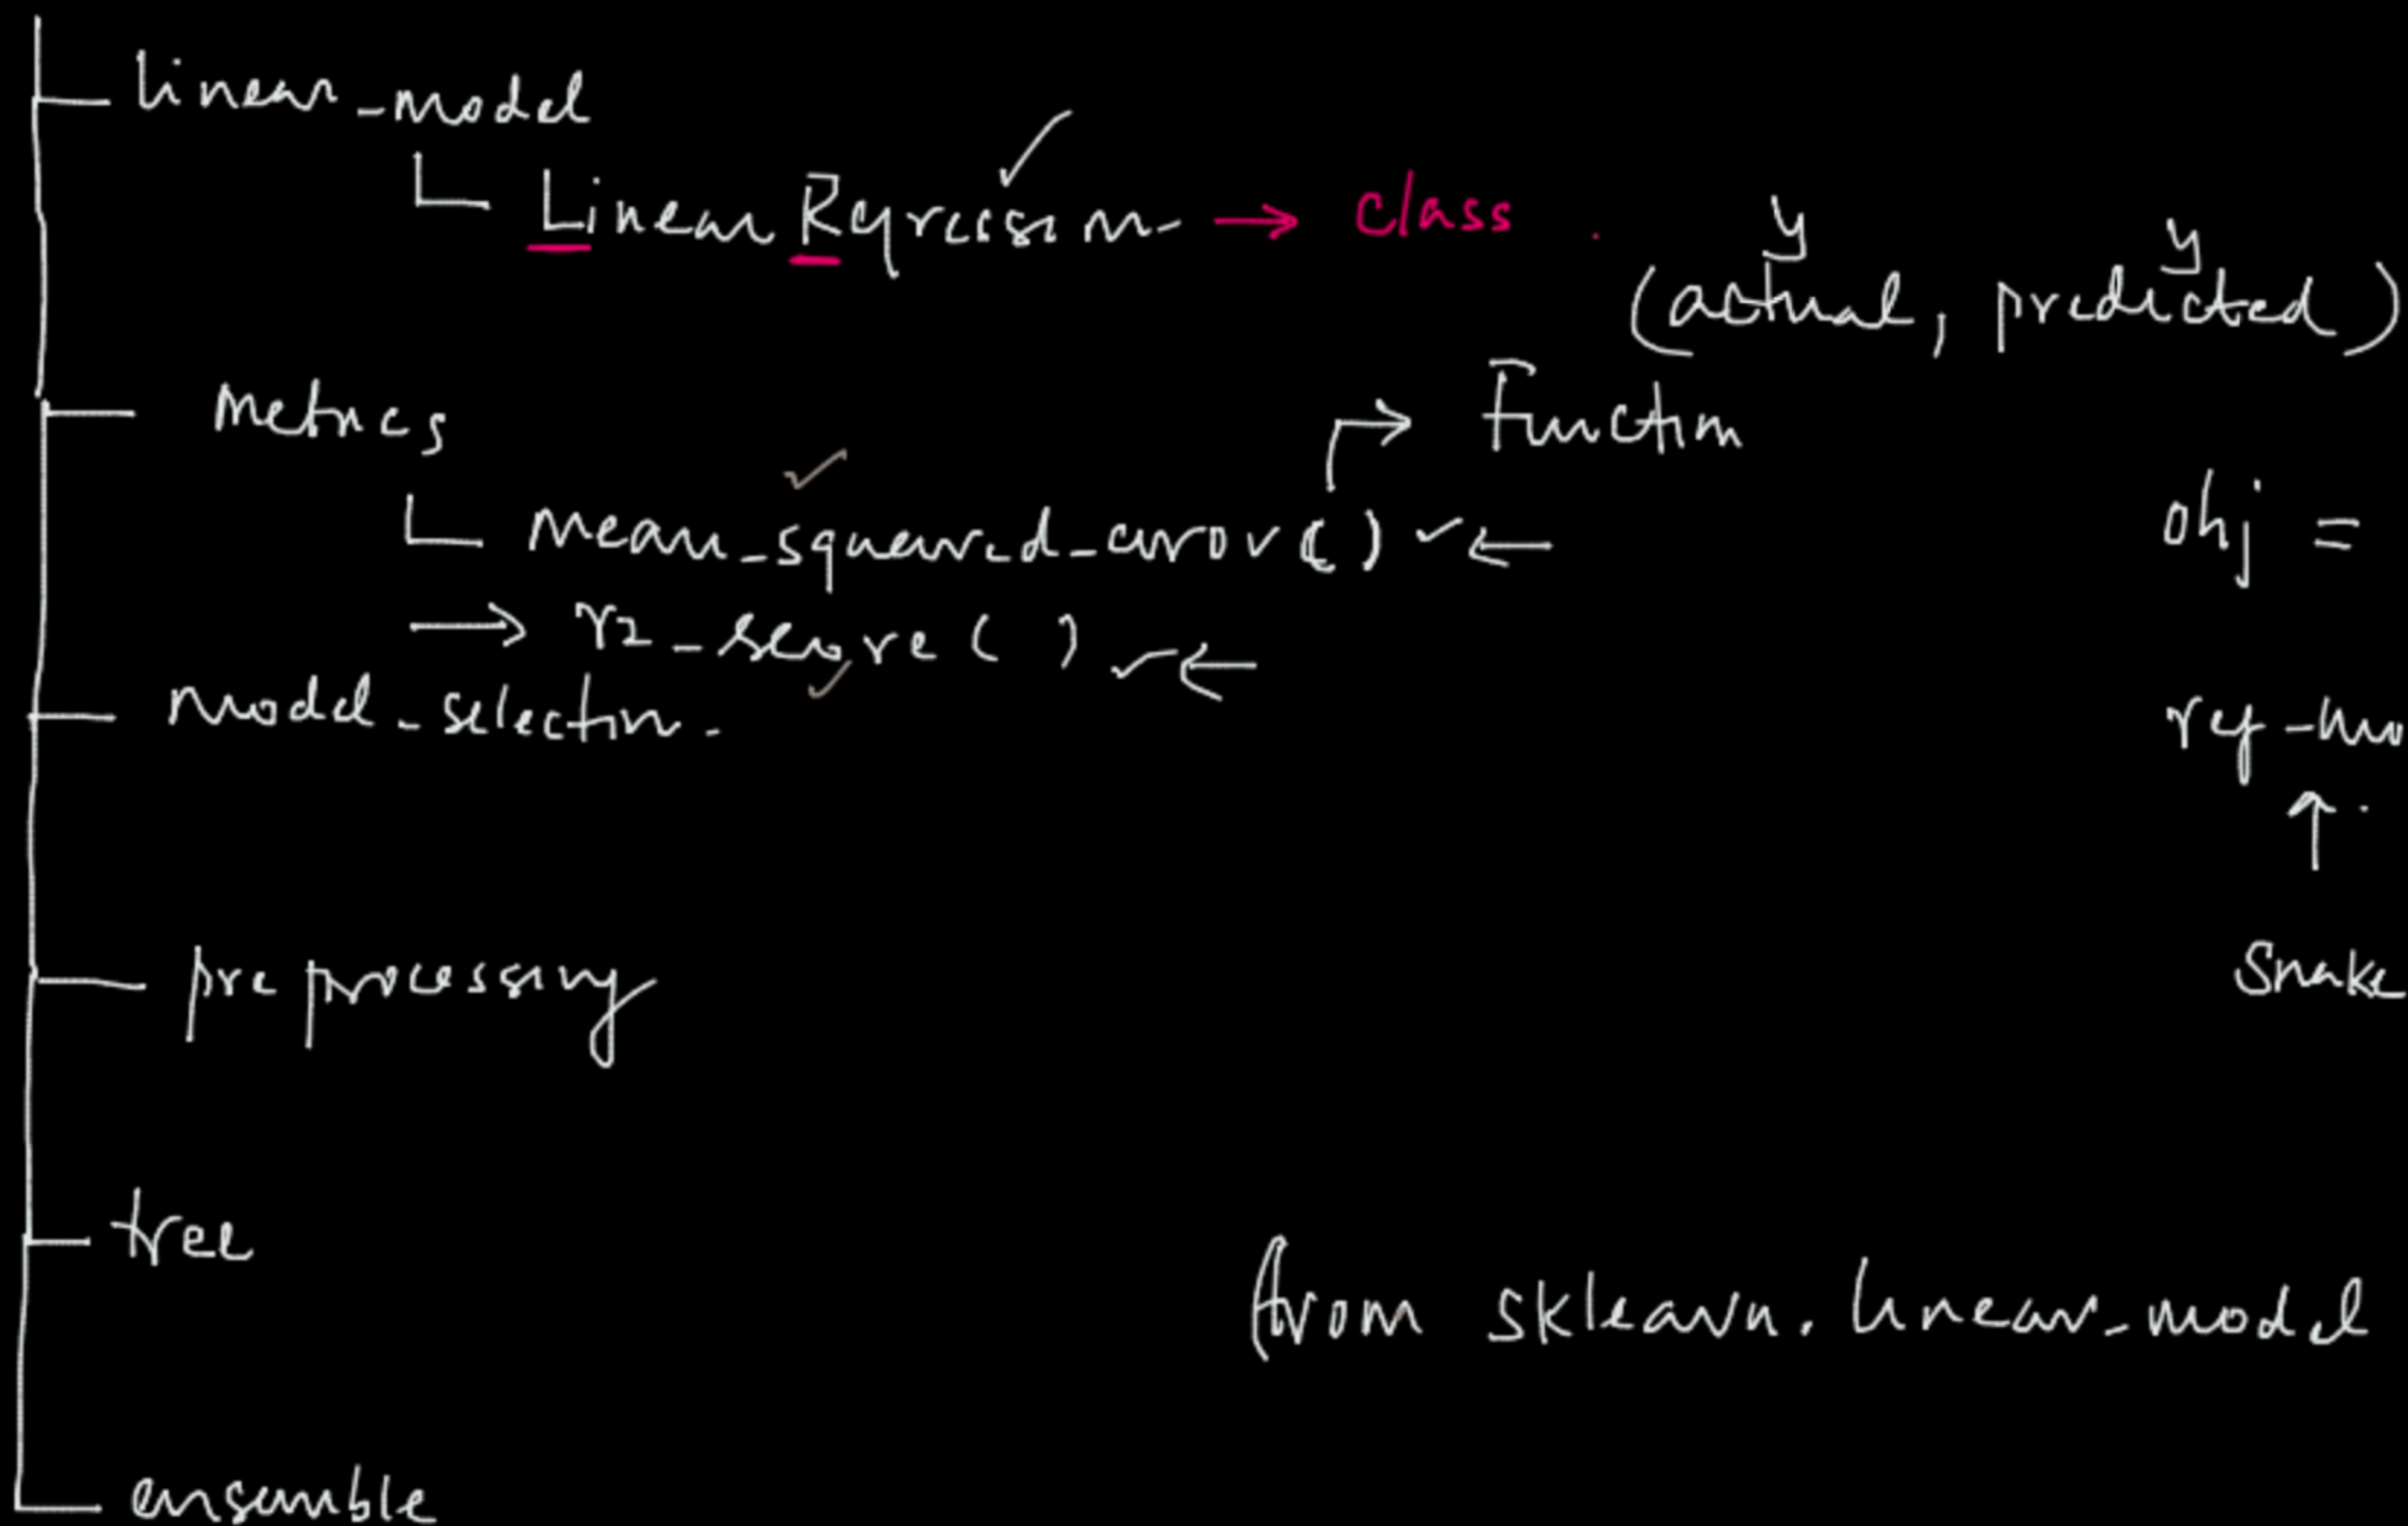 linear_model
LinearRegression → class
y y
(actual, predicted)
Metrics
Function
mean_squared_error()
obj =
→ r2_score()
model_selection
reg_mo
preprocessing
Snake
tree
from sklearn.linear_model
ensemble